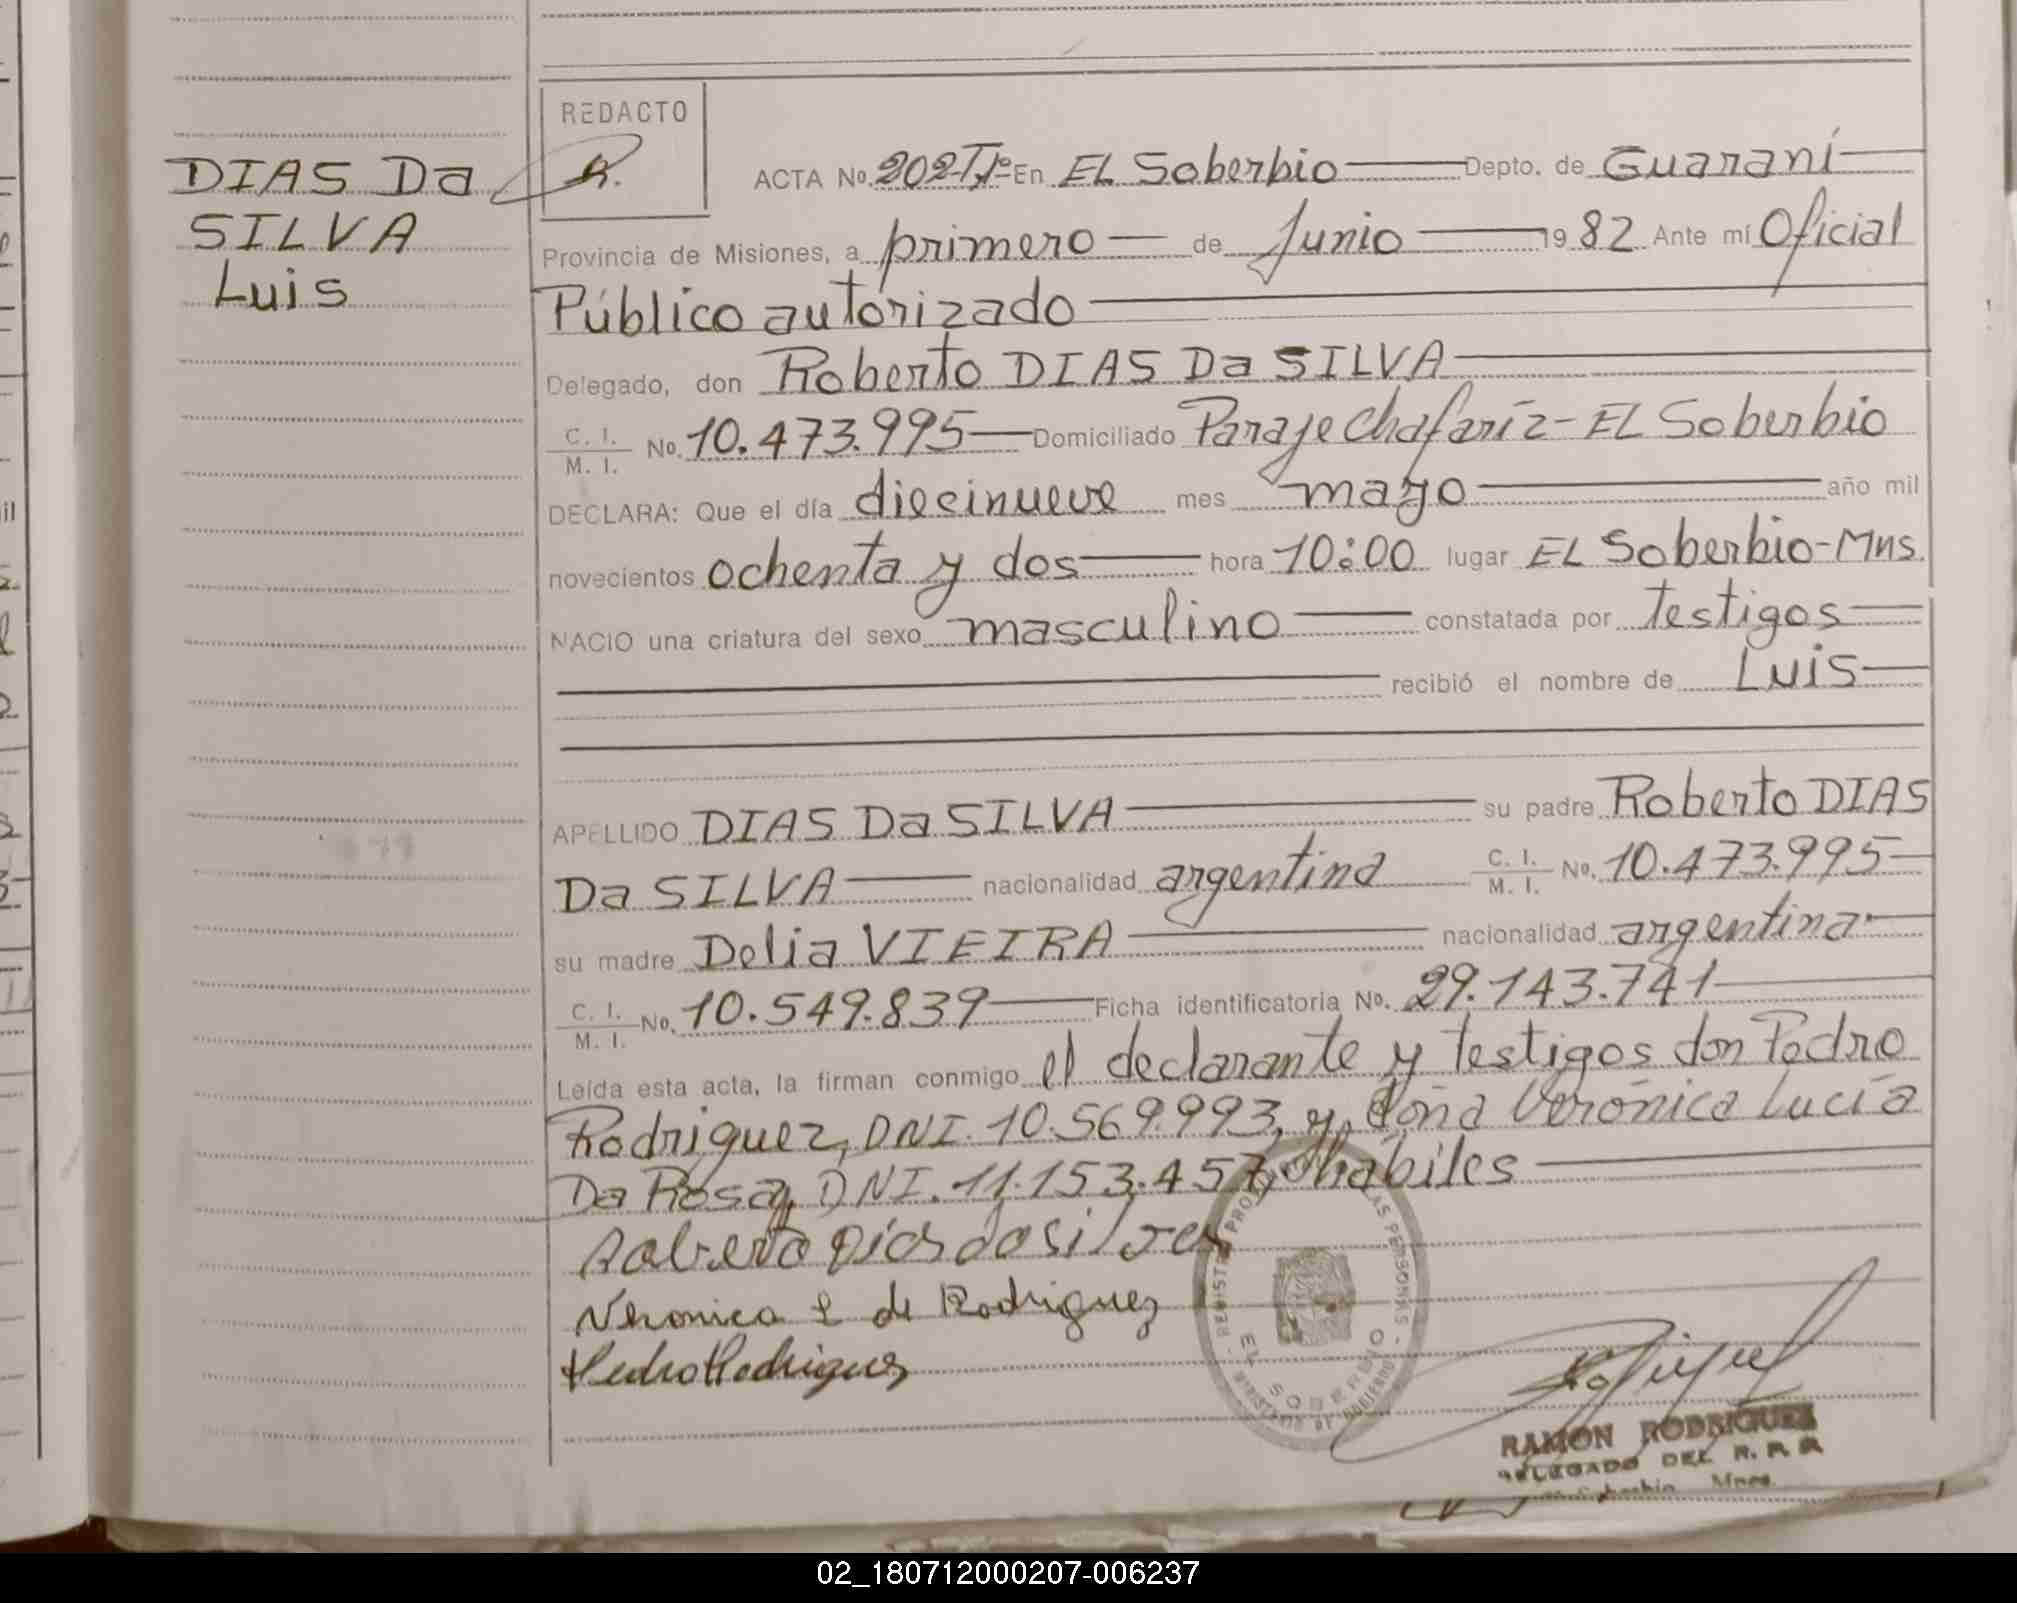 DIAS Da
SILVA
Luis
REDACTO
R.
ACTA No. 202-Tº Iº En EL Soberbio Depto. de Guaraní
Provincia de Misiones, a primero de Junio 19 82 Ante mí Oficial
Público autorizado
Delegado, don Roberto DIAS Da SILVA
C. I.
M. I. No. 10.473.995 Domiciliado Paraje Chafaríz - EL Soberbio
DECLARA: Que el día diecinueve mes mayo año mil
novecientos ochenta y dos hora 10:00 lugar EL Soberbio-Mns.
NACIO una criatura del sexo masculino constatada por testigos
recibió el nombre de Luis
APELLIDO DIAS Da SILVA su padre Roberto DIAS
Da SILVA nacionalidad argentina C. I. M. I. No. 10.473.995
su madre Delia VIEIRA nacionalidad argentina
C. I.
M. I. No. 10.549.839 Ficha identificatoria No. 29.143.741
Leída esta acta, la firman conmigo el declarante y testigos don Pedro
Rodriguez, DNI. 10.569.993, y doña Verónica Lucía
Da Rosa, DNI. 11.153.457, hábiles
Roberto Dias da Silva
Veronica L de Rodriguez
Pedro Rodriguez
EL SOBERBIO
RAMON RODRIGUEZ
DELEGADO DEL R. P. P.
02_180712000207-006237